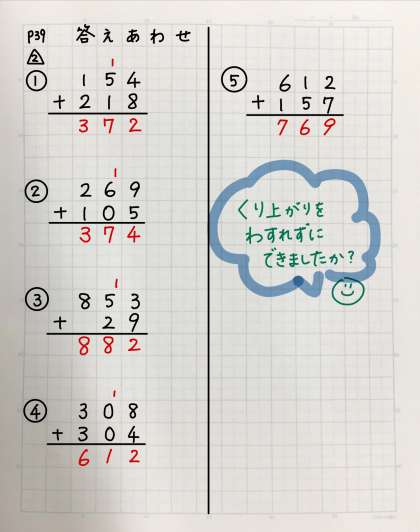 P39 答えあわせ
2
①
1
154
+218
372
②
1
269
+105
374
③
1
853
+ 29
882
④
1
308
+304
612
⑤
612
+157
769
くり上がりを
わすれずに
できましたか?